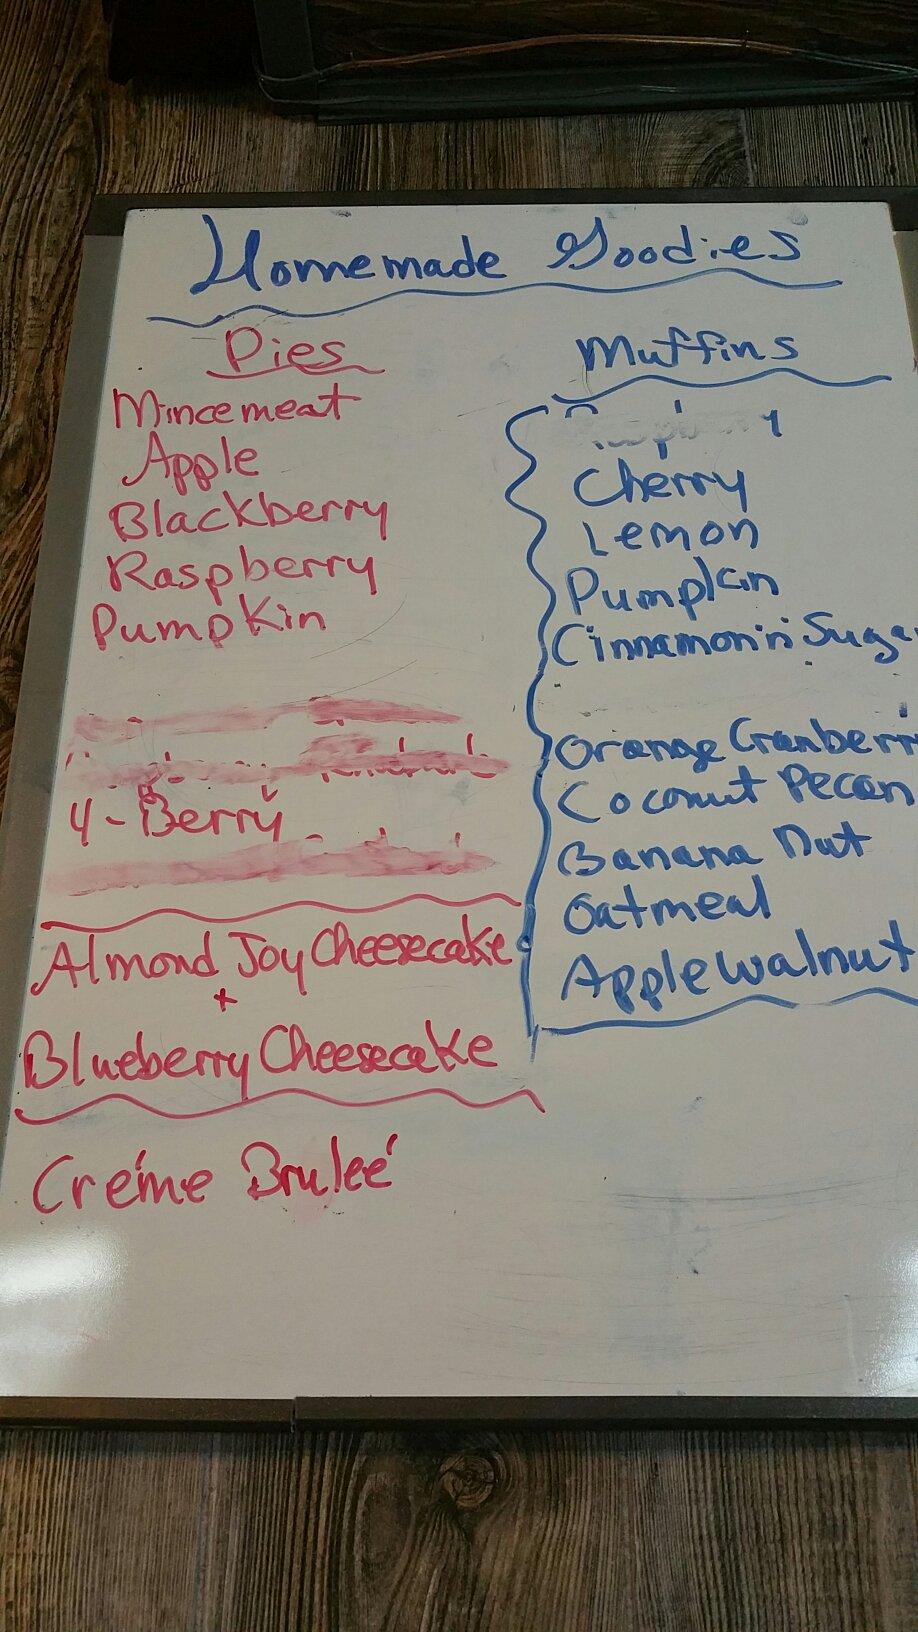 Homemade Goodies
Pies
Mincemeat
Apple
Blackberry
Raspberry
Pumpkin
4-Berry
Almond Joy Cheesecake
+
Blueberry Cheesecake
Créme Bruleé
Muffins
Cherry
Lemon
Pumpkin
Cinnamon'n Suga
Orange Cranberr
Coconut Pecan
Banana Nut
Oatmeal
Apple walnut